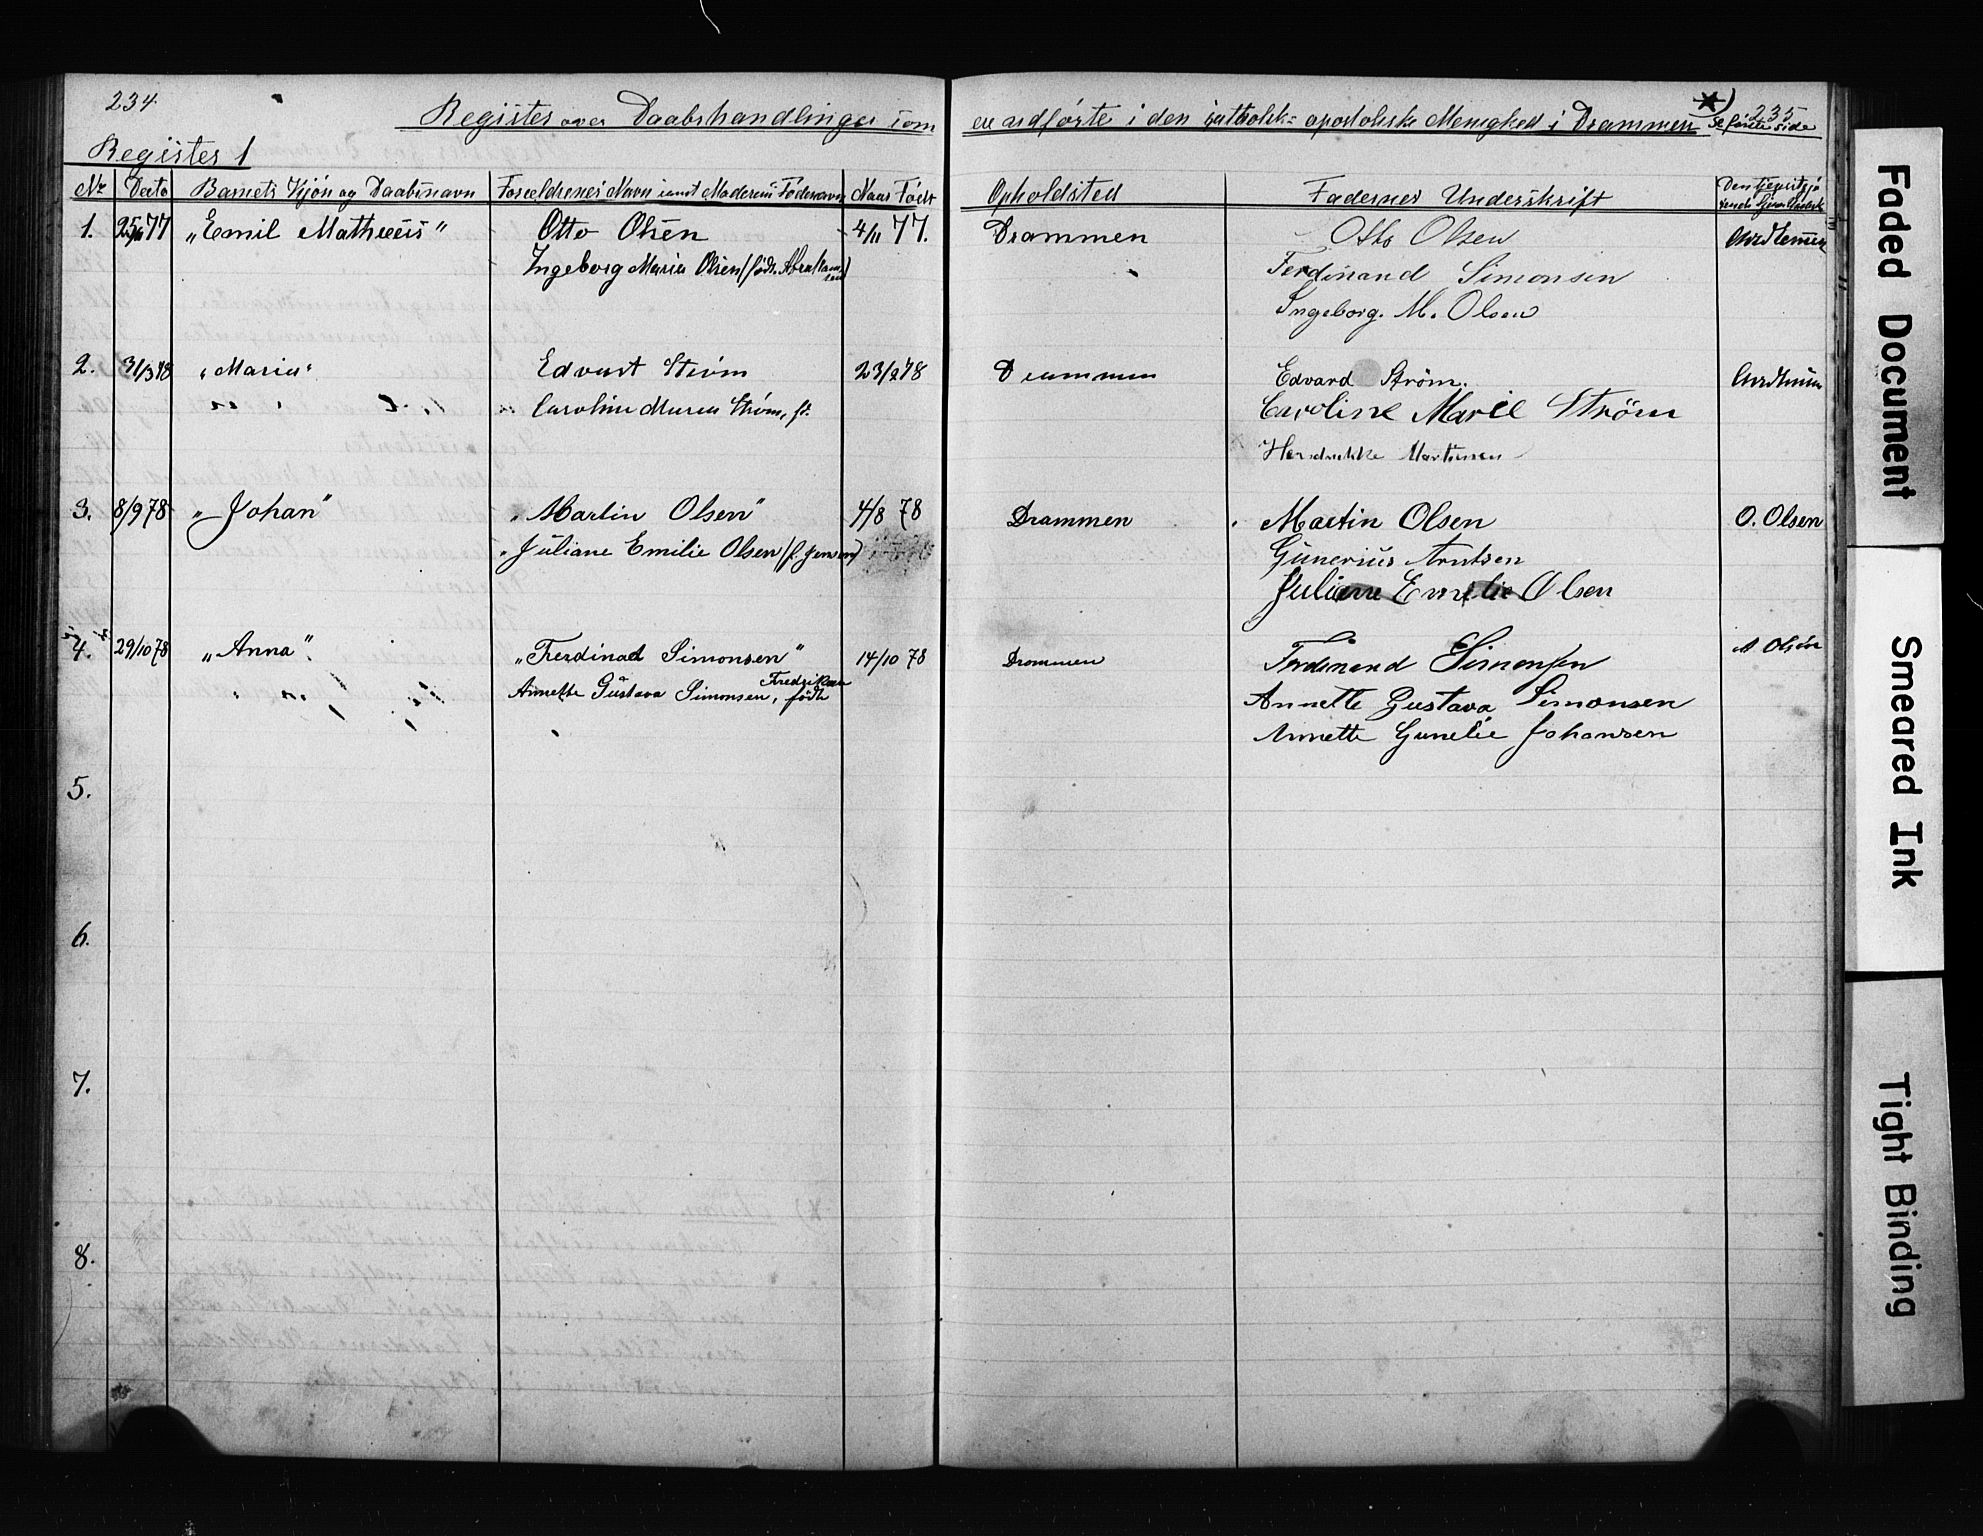 234
Register over Daabshandlinger som er udførte i den katholsk= apostoliske Menighed i Drammen *) 235
Se første side
Register 1
No Dato Barnets Kjøn og Daabsnavn Forældrenes Navn samt Moderens Fødenavn Naar Født Opholdsted Fadernes Underskrift
1. 25/11 77 „Emil Mathæus" Otto Olsen 4/11 77. Drammen Otto Olsen
Ingeborg Maria Olsen (født Abrahamsen) Ferdinand Simonsen
Ingeborg. M. Olsen
2. 31/3 78 „Maria" Edvart Strøm 23/2 78 Drammen Edvard Strøm.
Caroline Maria Strøm, f. Caroline Marie Ström
3. 8/9 78 „Johan" „Martin Olsen" 4/8 78 Drammen Martin Olsen O. Olsen
„Juliane Emilie Olsen (f. Jensen) Gunerius Arntsen
Juliane Emelie Olsen
4. 29/10 78 „Anna". „Ferdinad Simonsen" 14/10 78 Drammen Ferdinand Simonsen Olsen
Annette Gustava Simonsen, født Fredriksen Annette Gustava Simonsen
Annette Gunelie Johansen
5.
6.
7.
8.
Faded Document
Smeared Ink
Tight Binding